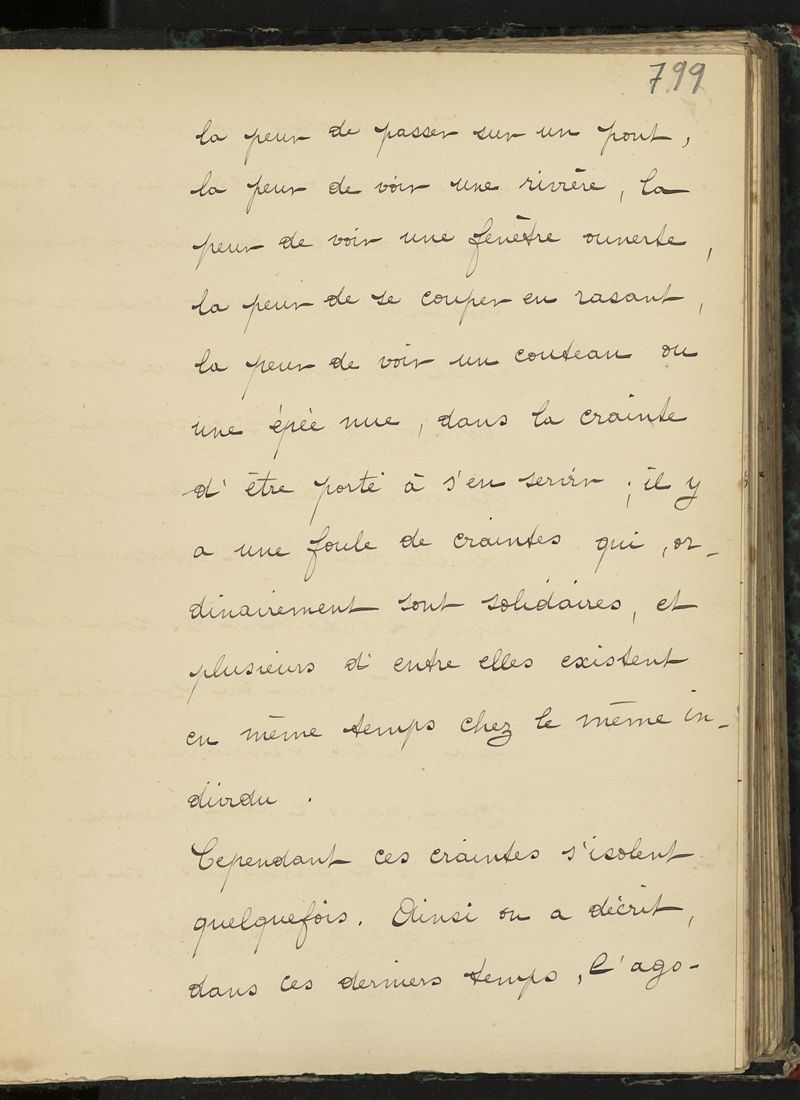 799
la peur de passer sur un pont,
la peur de voir une rivière, la
peur de voir une fenêtre ouverte,
la peur de se couper en rasant,
la peur de voir un couteau ou
une épée nue, dans la crainte
d'être porté à s'en servir ; il y
a une foule de craintes qui, or-
dinairement sont solidaires, et
plusieurs d'entre elles existent
en même temps chez le même in-
dividu.
Cependant ces craintes s'isolent
quelquefois. Ainsi on a décrit,
dans ces derniers temps, l'ago-